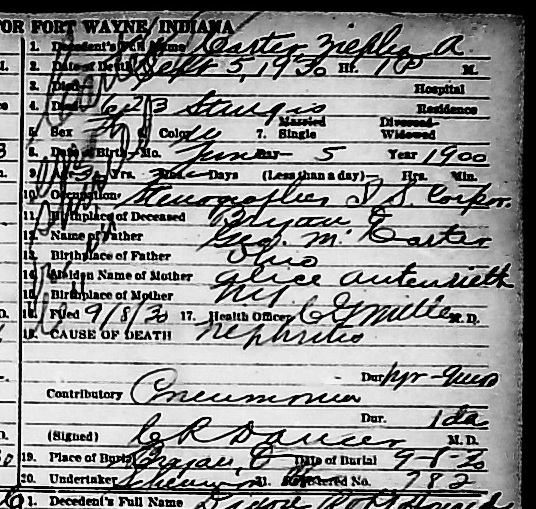 OR FORT WAYNE, INDIANA
1. Decedent's Full Name Carter A
2. Date of Death Sept 5, 1930 Hr. 1 P M.
3. Died Hospital
4. Died 623 Sturgis Residence
5. Sex 6. Color W 7. Single Married Widowed Divorced
8. Date of Birth—Mo. June Day 5 Year 1900
9. Yrs. Mos. Days (Less than a day)— Hrs. Min.
10. Occupation Stenographer S S. Corpor.
11. Birthplace of Deceased Bryan O
12. Name of Father Geo. M. Carter
13. Birthplace of Father Ohio
14. Maiden Name of Mother Alice Autenrieth
15. Birthplace of Mother
16. Filed 9/8/30 17. Health Officer Miller M. D.
18. CAUSE OF DEATH Nephritis
Dur.
Contributory Pneumonia
Dur. 1 da
(Signed) C R Dancer M. D.
19. Place of Burial Bryan, O Date of Burial 9-8-30
20. Undertaker 21. Registered No. 782
1. Decedent's Full Name